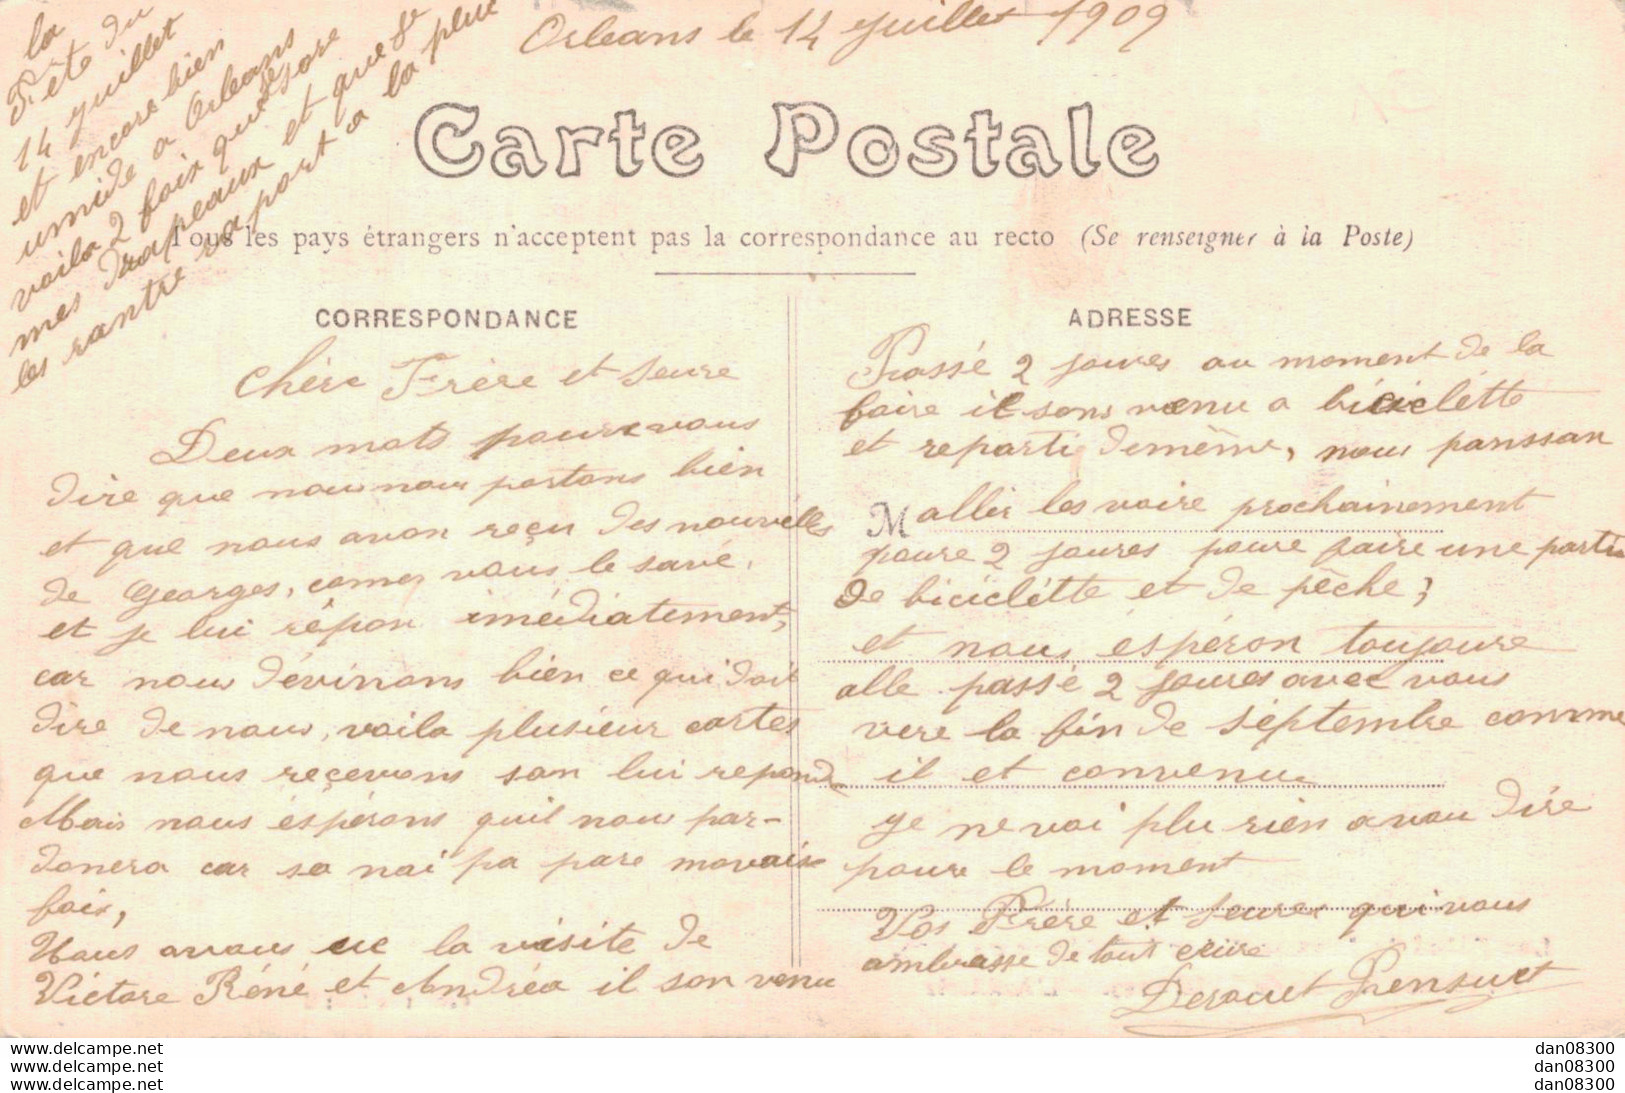 Orleans le 14 juillet 1909
la
Fête du
14 juillet
et encore bien
umide a Orleans
voila 2 foix que je sore
mes drapeaux et que je
les rantre rapport a la pluie
Carte Postale
Tous les pays étrangers n'acceptent pas la correspondance au recto (Se renseigner à la Poste)
CORRESPONDANCE
chère Frère et seure
Deux mots poure vous
dire que nou nou portons bien
et que nous avon reçu des nouvélles
de Georges, comes vous le savé,
et je lui répon imédiatement,
car nous dévinons bien ce qui doit
dire de nous, voila plusieur cartes
que nous reçevons san lui repondre
Mais nous éspérons quil nou par-
donera car sa nai pa pare movaise
fois,
Nous avons ue la visite de
Victore Réné et Andréa il son venu
ADRESSE
Passé 2 joures au moment de la
foire il sons venu a biciclétte
et reparti demême, nous panssan
M allér les voire prochainement
poure 2 joures poure faire une partie
de biciclétte et de pêche;
et nous éspéron toujoure
alle passé 2 joures avec vous
vere la fin de séptembre comme
il et convenu
je ne voi plu rien a vou dire
poure le moment
Vos Frère et seures qui vous
ambrasse de tout ceure
Derouet Prensuet
www.delcampe.net
www.delcampe.net
www.delcampe.net
dan08300
dan08300
dan08300